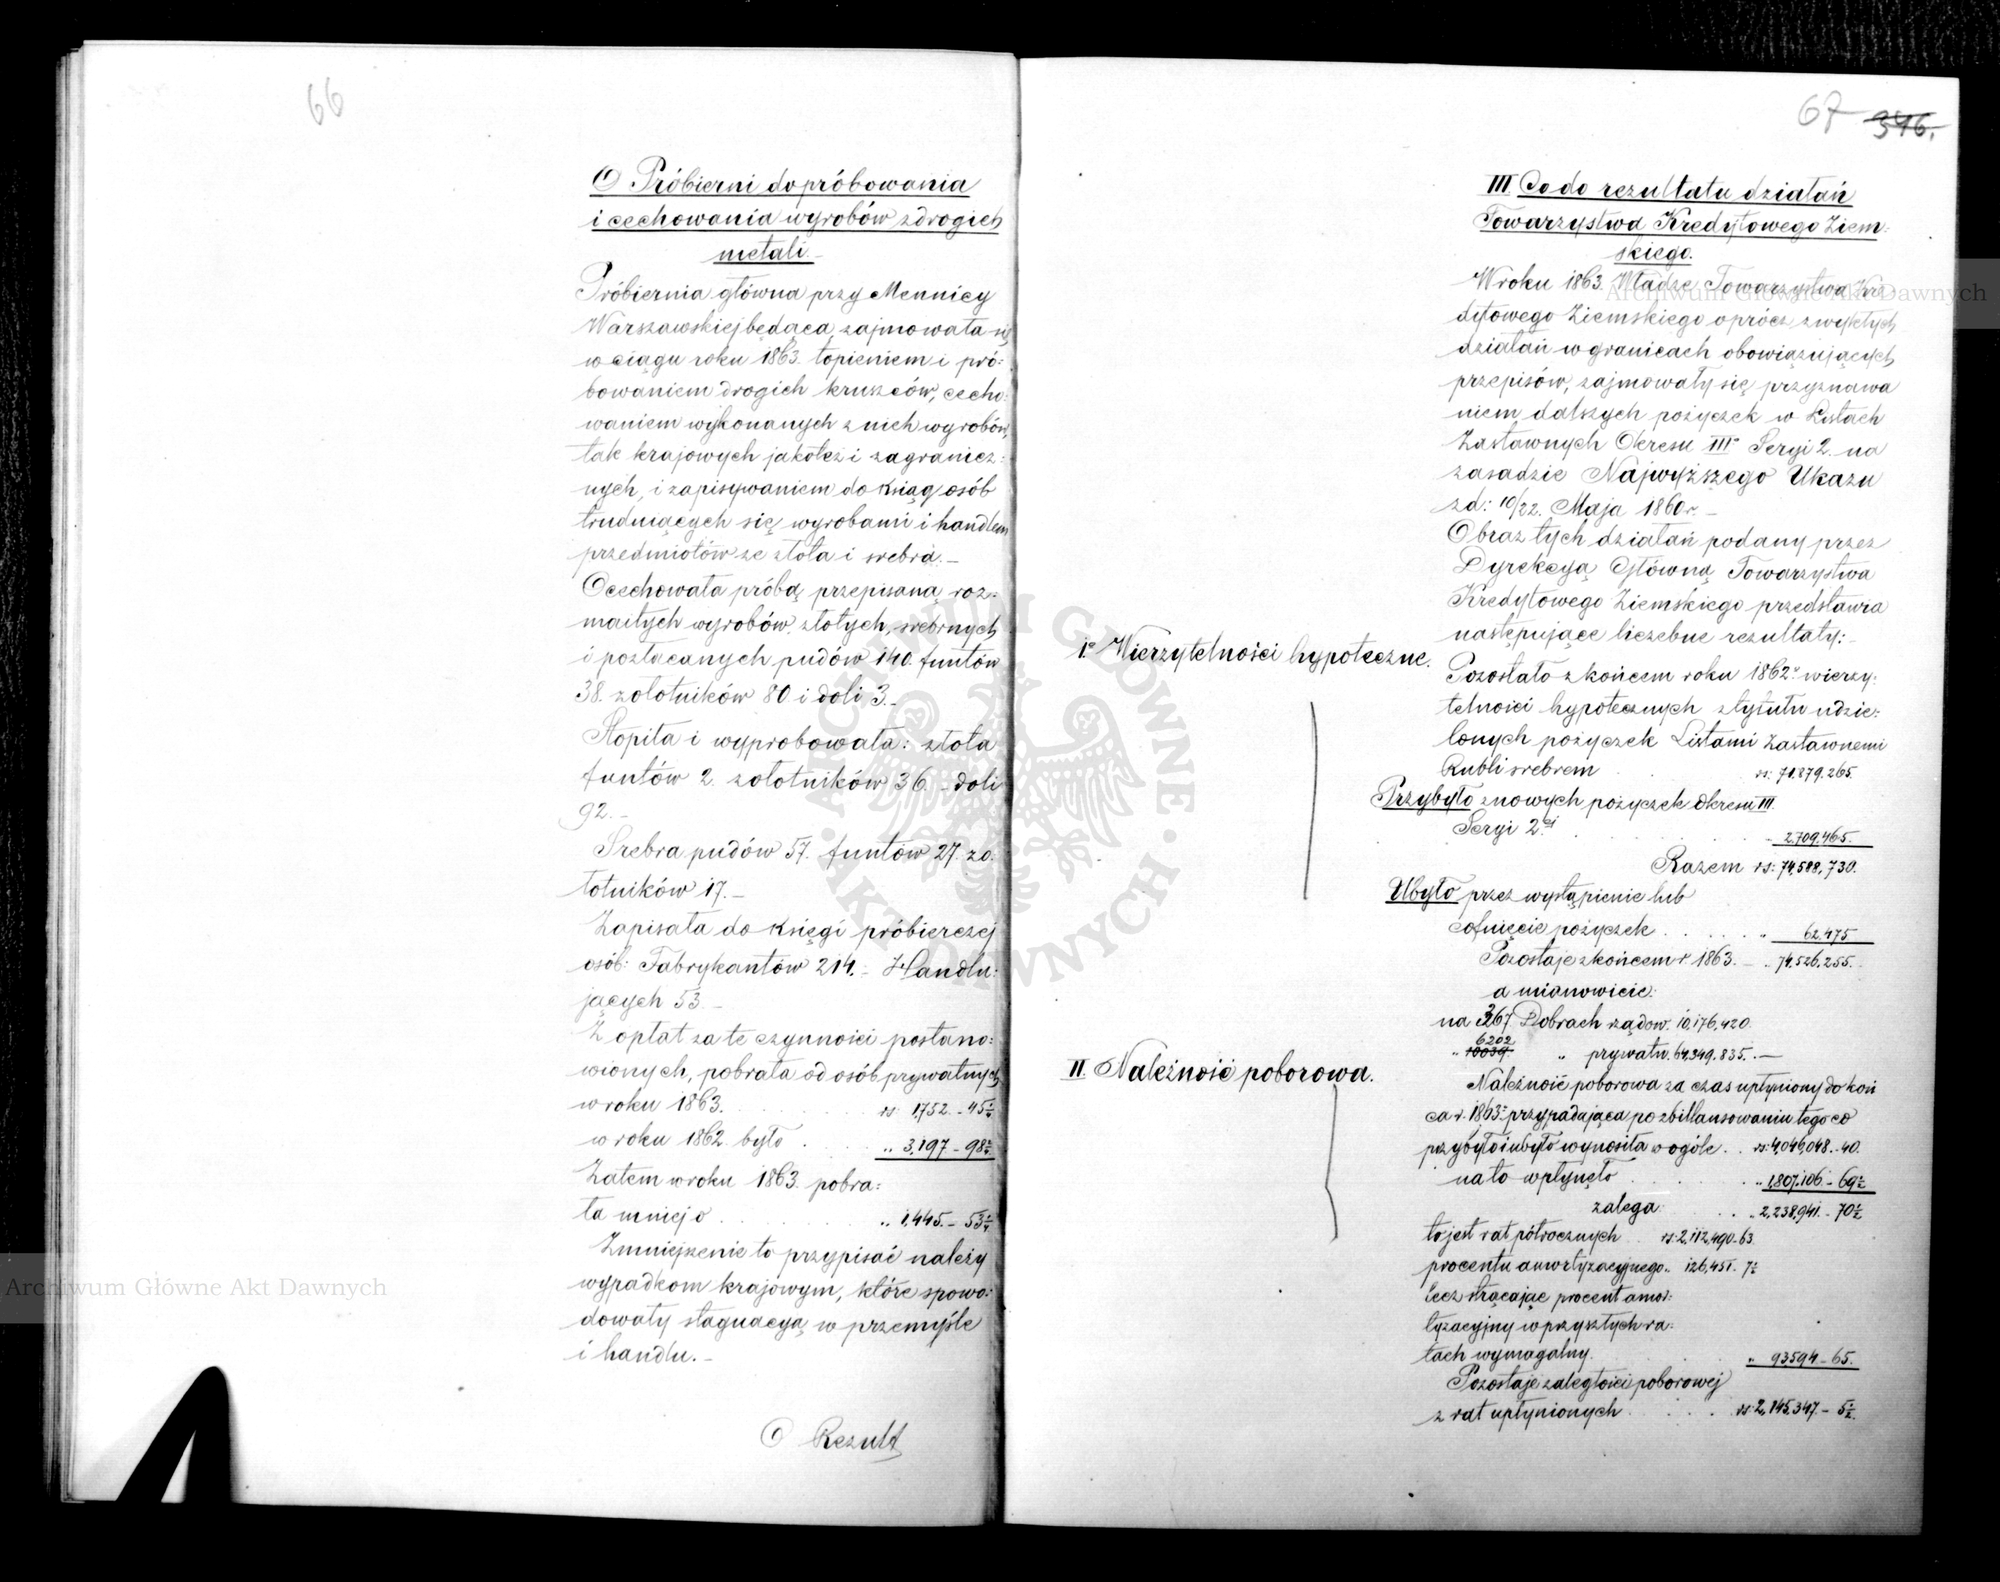 66
O Próbierni do próbowania
i cechowania wyrobów z drogich
metali.
Próbiernia główna przy Mennicy
Warszawskiej będąca, zajmowała się
w ciągu roku 1863. topieniem i pró-
bowaniem drogich kruszców, cecho-
waniem wykonanych z nich wyrobów,
tak krajowych jakoteż i zagranicz-
nych, i zapisywaniem do ksiąg osób
trudniących się wyrobami i handlem
przedmiotów ze złota i srebra.–
Ocechowała próbą przepisaną roz-
maitych wyrobów złotych, srebrnych
i pozłacanych pudów 140. funtów
38. zołotników 80 i doli 3.–
Stopiła i wyprobowała: złota
funtów 2. zołotników 36.– doli
92.–
Srebra pudów 57. funtów 27. zo-
łotników 17.–
Zapisała do księgi próbierczej
osób: Fabrykantów 214.– Handlu-
jących 53.–
Z opłat za te czynności postano-
wionych, pobrała od osób prywatnych
w roku 1863. rs: 1,752.–45¼
w roku 1862. było „ 3,197–98¾
Zatem w roku 1863. pobra-
ła mniej o „ 1,445.–53½
Zmniejszenie to przypisać należy
wypadkom krajowym, które spowo-
dowały stagnacyą w przemyśle
i handlu.–
O Rezult
67 346.
III. Co do rezultatu działań
Towarzystwa Kredytowego Ziem-
skiego.
W roku 1863. Władze Towarzystwa Kre
dytowego Ziemskiego oprócz zwykłych
działań w granicach obowiązujących
przepisów, zajmowały się przyznawa
niem dalszych pożyczek w Listach
Zastawnych Okresu IIIo Seryi 2. na
zasadzie Najwyższego Ukazu
z d: 10/22. Maja 1860 r.–
Obraz tych działań podany przez
Dyrekcyą Główną Towarzystwa
Kredytowego Ziemskiego przedstawia
następujące liczebne rezultaty:–
Io Wierzytelności hypoteczne.
Pozostało z końcem roku 1862o wierzy-
telności hypotecznych z tytułu udzie-
lonych pożyczek Listami Zastawnemi
Rubli srebrem rs: 71.879.265.
Przybyło z nowych pożyczek Okresu III.
Seryi 2ej „ 2.709.465.
Razem rs: 74,588,730.
Ubyło przez wystąpienie lub
cofnięcie pożyczek „ 62.475
Pozostaje z końcem r 1863.– „ 74.526.255.
a mianowicie:
na 3267 Dobrach rządow. 10,176,420.
6202
„ 10039. „ prywatn. 64,349,835.–
II. Należność poborowa.
Należność poborowa za czas upłyniony do koń
ca r. 1863o przypadająca po zbillansowaniu tego co
przybyło i ubyło wynosiła w ogóle rs: 4,046,048.–40.
na to wpłynęło „ 1,807.106.–69½
zalega „ 2,238,941.–70½
to jest rat półrocznych rs: 2,112,490–63.
procentu amortyzacyjnego „ 126,451. 7½
lecz strącając procent amor-
tyzacyjny w przyszłych ra-
tach wymagalny „ 93594–65.
Pozostaje zaległości poborowej
z rat upłynionych rs: 2,145,347.– 5½
Archiwum Główne Akt Dawnych
Archiwum Główne Akt Dawnych
ARCHIWUM GŁÓWNE
AKT DAWNYCH